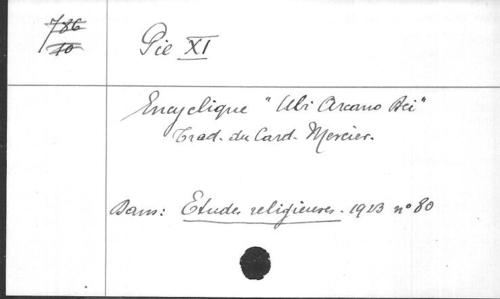 786
10
Pie XI
Encyclique "Ubi Arcano Dei"
Trad. du Card. Mercier.
Dans: Etudes religieuses. 1923 n° 80